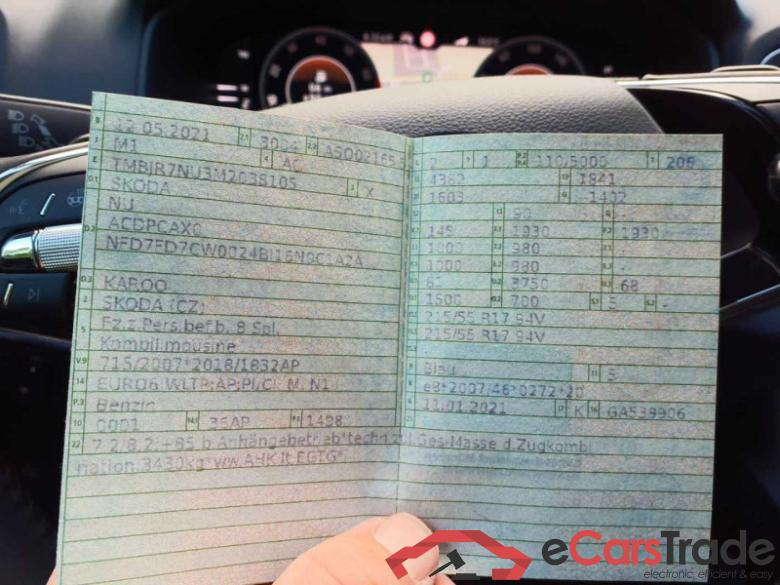 B 12.05.2021 2.1 3004 2.2 ASO02165
J M1 4 AC
E TMBJR7NU3M2038105 3 X
D.1 SKODA
NU
D.2 ACDPCAX0
D.3 KAROQ
2 SKODA (CZ)
5 Fz.z.Pers.bef.b. 8 Spl.
Kombilimousine
V.9 715/2007*2018/1832AP
14 EURO6 WLTP;AP;PI/CI; M, N1 I
P.3 Benzin
10 0001 14.1 36AP P.1 1498
22 7.2/8.2:+85 b.Anhängebetrieb*techn.zul.Ges-Masse d.Zugkombi
nation:3430kg*ww.AHK lt.EGTG*
L 2 9 1 110/5000 T 206
4382 19 1841
1603 -1402
13 90
145 1930 1930
1000 980 -
1000 980 -
3750 68
1500 700 S.1 5 S.2 -
215/55 R17 94V
215/55 R17 94V
Blau 11 5
K e8*2007/46*0272*20
6 11.01.2021 17 K 16 GA539906
eCarsTrade
electronic, efficient & easy